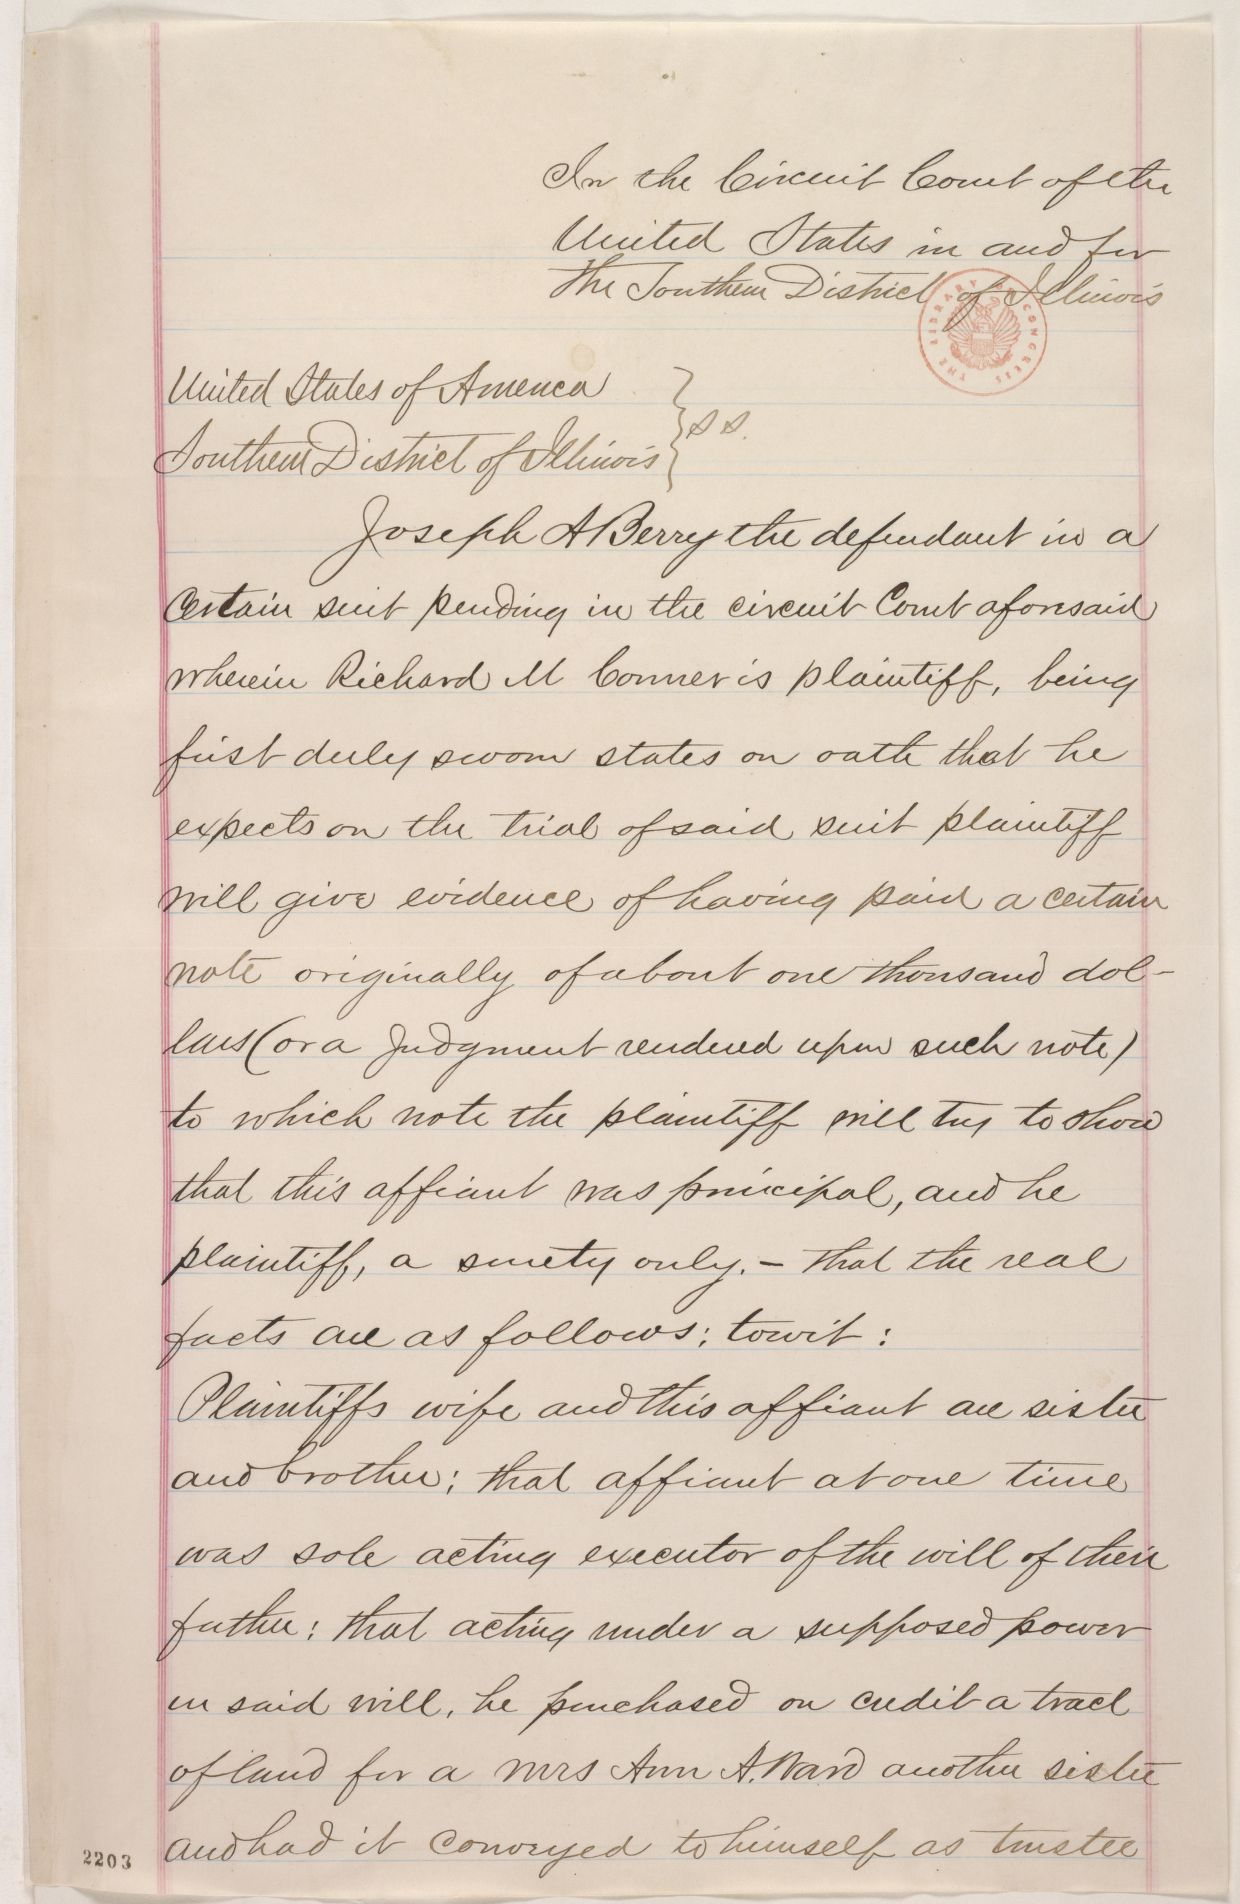 In the Circuit Court of the
United States in and for
the Southern District of Illinois
THE LIBRARY OF CONGRESS
United States of America
Southern District of Illinois } s s.
Joseph A Berry the defendant in a
certain suit pending in the circuit Court aforesaid
wherein Richard M Conner is plaintiff, being
first duly sworn states on oath that he
expects on the trial of said suit plaintiff
will give evidence of having paid a certain
note originally of about one thousand dol-
lars (or a Judgment rendered upon such note)
to which note the plaintiff will try to show
that this affiant was principal, and he
plaintiff, a surety only. – that the real
facts are as follows; towit:
Plaintiffs wife and this affiant are sister
and brother; that affiant at one time
was sole acting executor of the will of their
father; that acting under a supposed power
in said will, he purchased on credit a tract
of land for a Mrs Ann A. Ward another sister
and had it conveyed to himself as trustee
2203